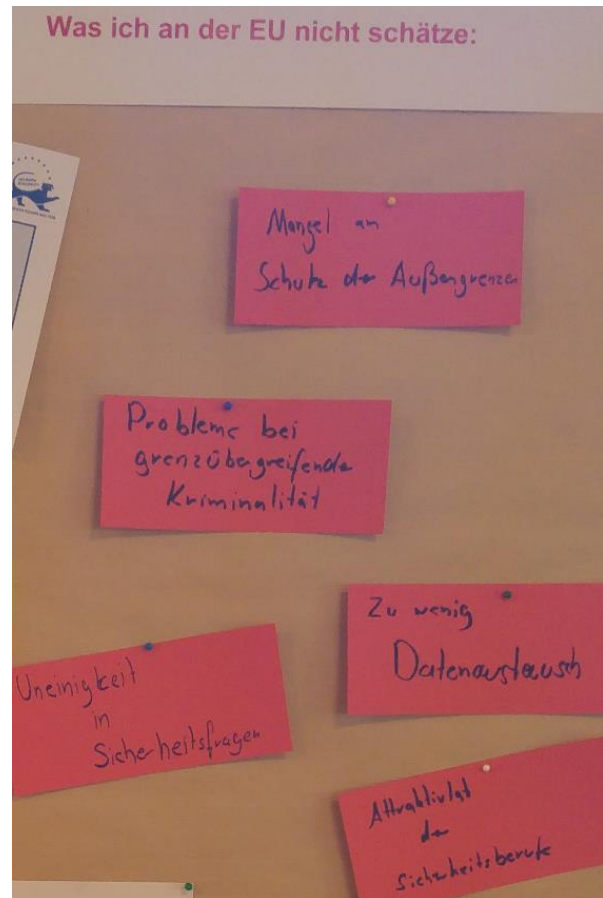 Was ich an der EU nicht schätze:
Mangel an
Schutz der Außengrenzen
Probleme bei
grenzübergreifender
Kriminalität
Zu wenig
Datenaustausch
Uneinigkeit
in
Sicherheitsfragen
Attraktivität
der
Sicherheitsberufe